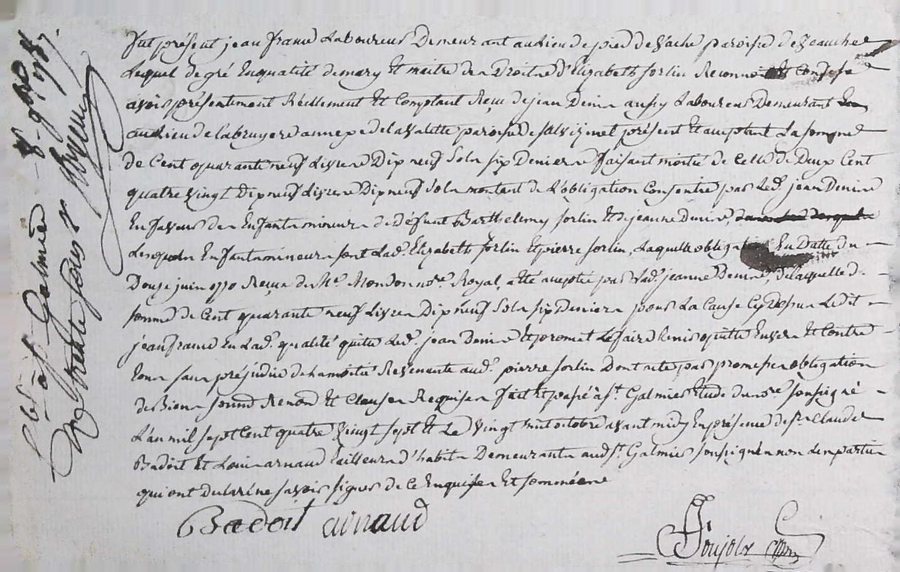 fut présent jean france Laboureur Demeurant au Lieu de pied de vache paroisse de veauche
Lequel de gré En qualité de mary Et maitre des Droits d'Elizabeth forlin Reconnoit Et Confesse
avoir présentement Réellement Et Comptant Reçu de jean Denis aussy Laboureur Demeurant
au Lieu de Labruyere annexe de Lavalette paroisse de present Et acceptant La somme
de Cent quarante neuf Livres Dix neuf Sols six Deniers faisant moitié de Celle de Deux Cent
quatre vingt Dix neuf Livres Dix neuf Sols montant de L'obligation Consentie par Led. jean Denis
En faveur des Enfants mineurs de Défunt Barthelemy forlin Et de jeanne Denis,
Lesquels Enfants mineurs sont Lad. Elizabeth forlin Et pierre forlin, Laquelle obligation En Datte du
Douze juin Reçue de Me. Mondon nore. Royal, a été acceptée par Lad. jeanne Denis, De laquelle d.
somme de Cent quarante neuf Livres Dix neuf Sols six Deniers pour La Cause Cy dessus Led it
jean france En Lad. qualité quitte Led. jean Denis Et promet Le faire tenir quitte Envers Et Contre
tous sans préjudice de La moitié Revenante aud. pierre forlin Dont acte, par promesses obligation
de Biens soumis Renon Et Clauses Requises fait Et passé a St. Galmier Etude du nore. soussigné
L'an mil sept Cent quatre vingt sept Et Le vingt huit octobre avant midy En présence de Sr. Claude
Badoit Et Louis arnaud tailleur d'habits Demeurants aud. St. Galmier soussignés non Les parties
qui ont déclaré ne savoir signer de ce Enquises Et sommées
Badoit arnaud
Pojolx
Clé a St Galmier Le 8. 9bre 1787.